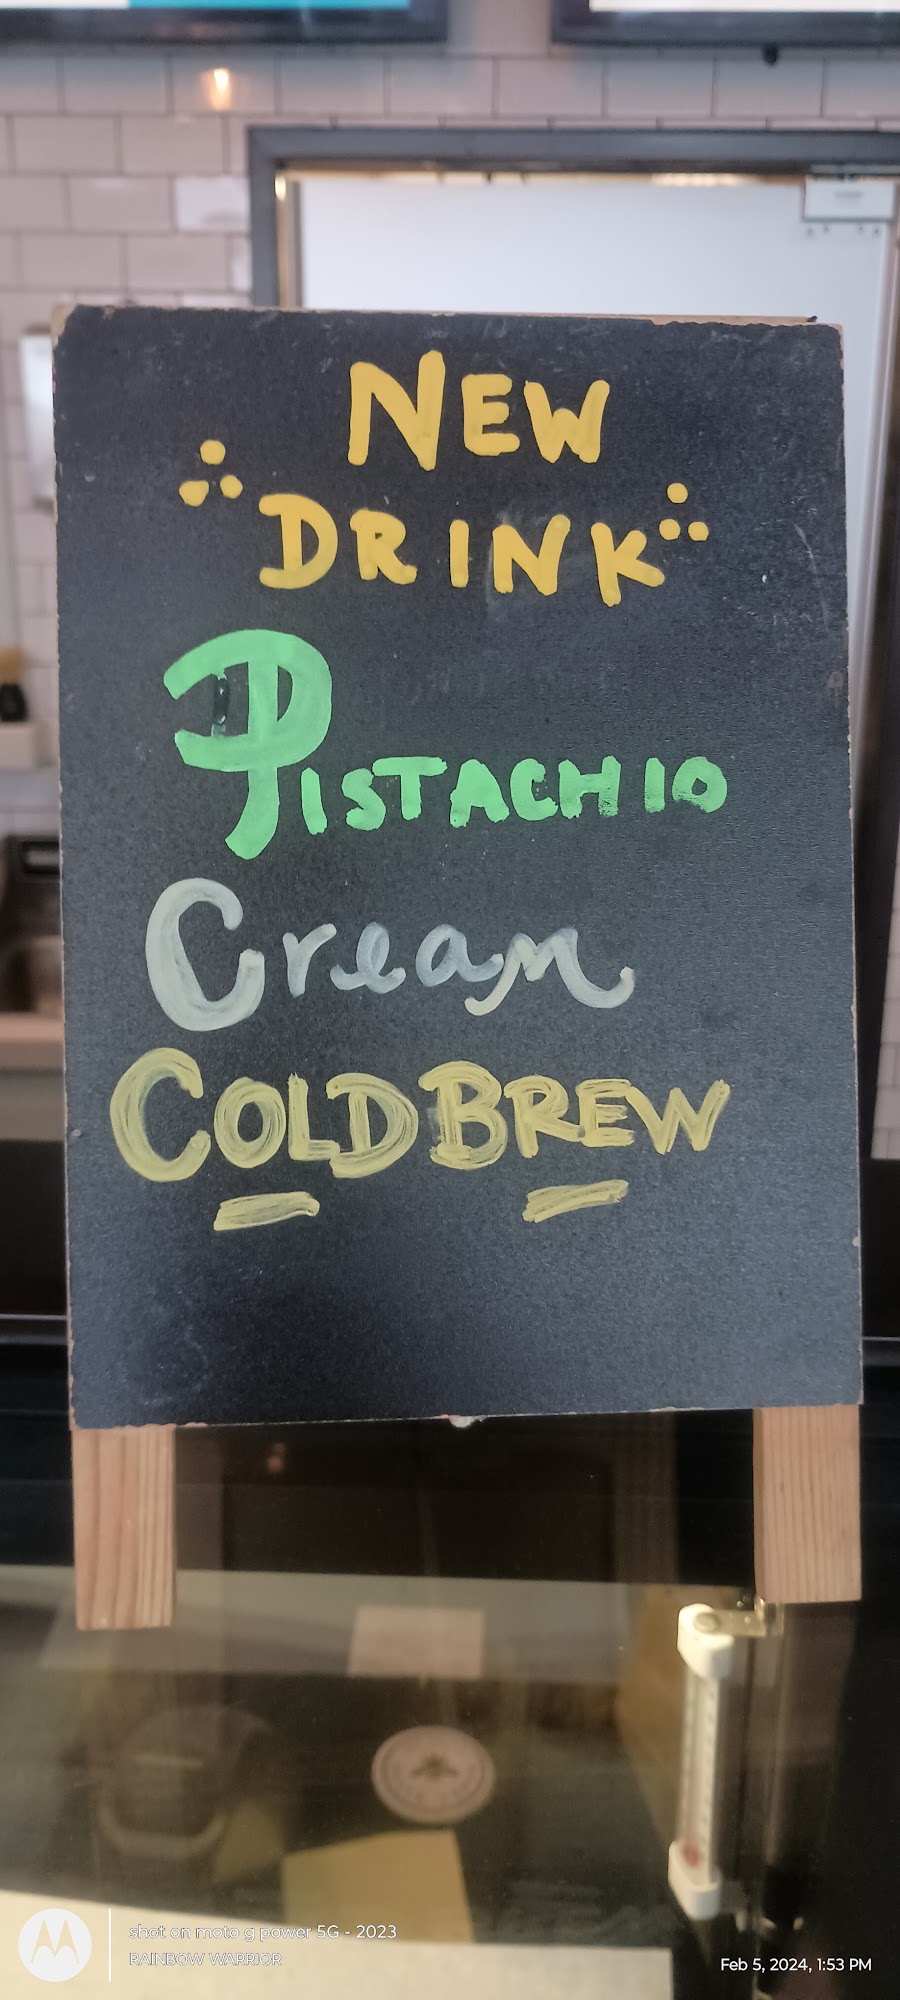 NEW
DRINK
PISTACHIO
Cream
COLD BREW
shot on moto g power 5G - 2023
RAINBOW WARRIOR
Feb 5, 2024, 1:53 PM